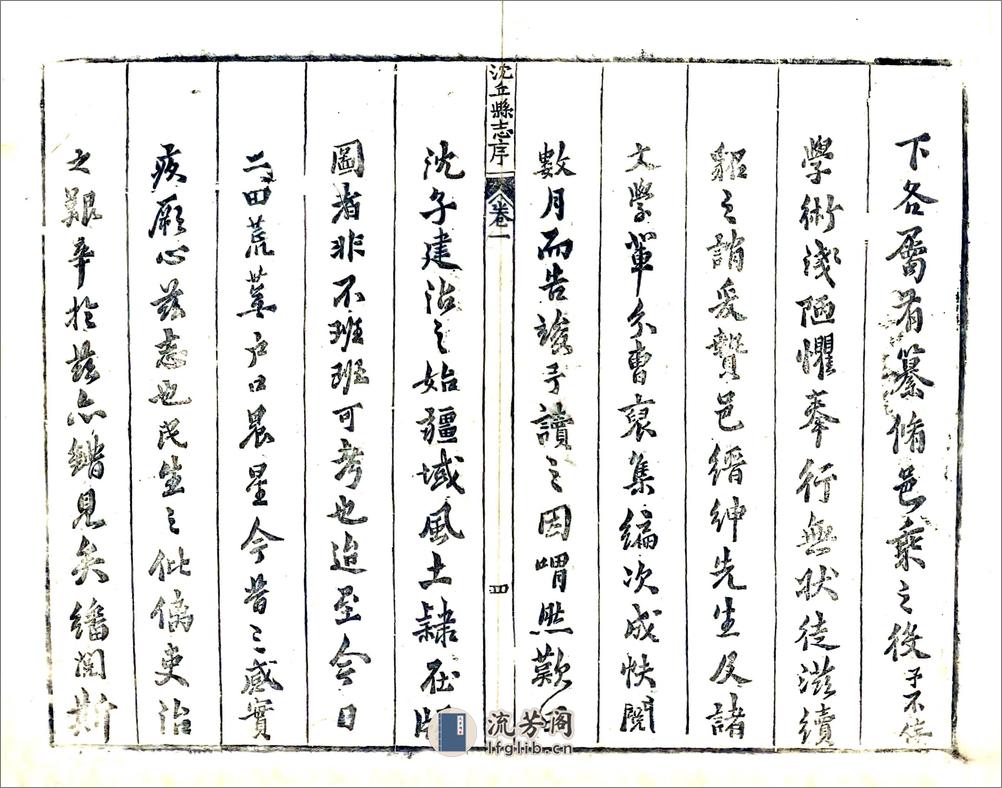 下各屬有纂脩邑乘之役予不佞
學術淺陋懼奉行無狀徒滋續
貂之誚爰贊邑縉紳先生及諸
文學軰分曹裒集編次成帙閱
數月而告竣予讀之因喟然歎
沈丘縣志序 卷一 四
沈子建治之始疆域風土隷在版
圖者非不班班可考也迨至今日
二田荒蕪户口晨星今昔之感實
疚厥心兹志也民生之仳㒧吏治
之艱辛扵兹亦緒見矣繙閱斯
流芳阁
lfglib.cn